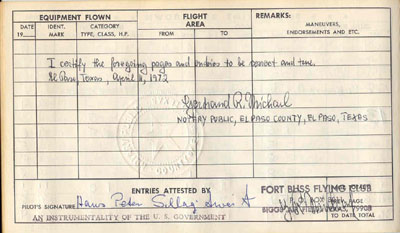 EQUIPMENT FLOWN
FLIGHT AREA
REMARKS:
DATE 19
IDENT. MARK
CATEGORY TYPE, CLASS, H.P.
FROM
TO
MANEUVERS, ENDORSEMENTS AND ETC.
I certify the foregoing pages and entries to be correct and true.
El Paso, Texas, April 11, 1972
Gertraud R. Michael
NOTARY PUBLIC, EL PASO COUNTY, EL PASO, TEXAS
ENTRIES ATTESTED BY
FORT BLISS FLYING CLUB
PILOT'S SIGNATURE Hans Peter
BOX
TEXAS, 79908
AN INSTRUMENTALITY OF THE U. S. GOVERNMENT
TO DATE TOTAL